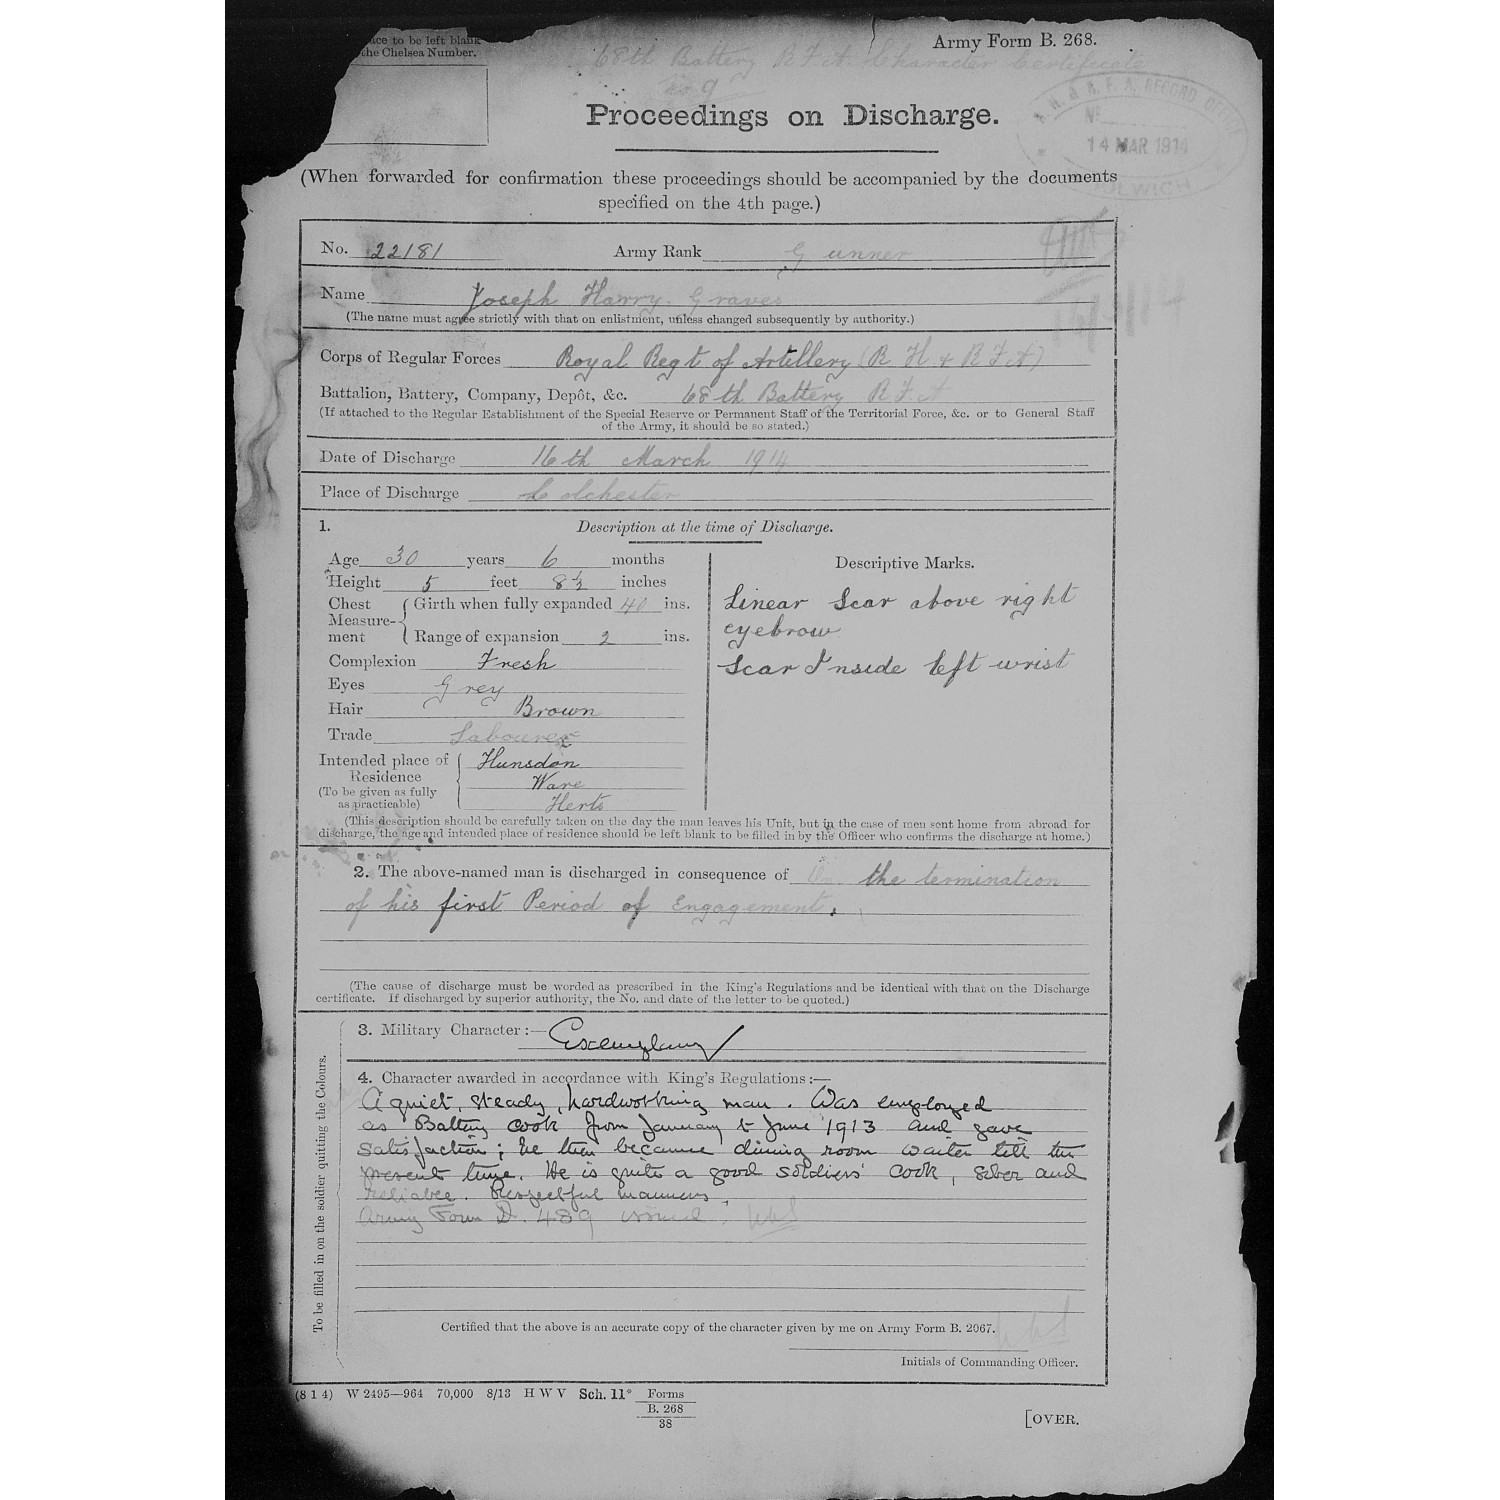 ace to be left blank
the Chelsea Number.
Army Form B. 268.
68th Battery R.F.A. Character Certificate
No 9
Proceedings on Discharge.
R. H. & R. F. A. RECORD OFFICE
No
14 MAR 1914
WOOLWICH
(When forwarded for confirmation these proceedings should be accompanied by the documents
specified on the 4th page.)
No. 22181 Army Rank Gunner
Name Joseph Harry Graves
(The name must agree strictly with that on enlistment, unless changed subsequently by authority.)
Corps of Regular Forces Royal Regt of Artillery (R H & R F A)
Battalion, Battery, Company, Depôt, &c. 68th Battery R.F.A
(If attached to the Regular Establishment of the Special Reserve or Permanent Staff of the Territorial Force, &c. or to General Staff
of the Army, it should be so stated.)
Date of Discharge 16th March 1914
Place of Discharge Colchester
1. Description at the time of Discharge.
Age 30 years 6 months
Height 5 feet 8½ inches
Chest Measurement { Girth when fully expanded 40 ins.
Range of expansion 2 ins.
Complexion Fresh
Eyes Grey
Hair Brown
Trade Labourer
Intended place of Residence { Hunsdon
Ware
Herts
(To be given as fully
as practicable)
Descriptive Marks.
Linear Scar above right
eyebrow
Scar Inside left wrist
(This description should be carefully taken on the day the man leaves his Unit, but in the case of men sent home from abroad for
discharge, the age and intended place of residence should be left blank to be filled in by the Officer who confirms the discharge at home.)
2. The above-named man is discharged in consequence of On the termination
of his first Period of Engagement.
(The cause of discharge must be worded as prescribed in the King's Regulations and be identical with that on the Discharge
certificate. If discharged by superior authority, the No. and date of the letter to be quoted.)
To be filled in on the soldier quitting the Colours.
3. Military Character:— Exemplary
4. Character awarded in accordance with King's Regulations:—
A quiet, steady, hardworking man. Was employed
as Battery cook from January to June 1913 and gave
satisfaction; he then became dining room waiter till the
present time. He is quite a good soldiers' cook, sober and
reliable. Respectful manners.
Army Form D. 489 issued.
Certified that the above is an accurate copy of the character given by me on Army Form B. 2067.
Initials of Commanding Officer.
(8 1 4) W 2495—964 70,000 8/13 H W V Sch. 11* Forms
B. 268
38
[OVER.